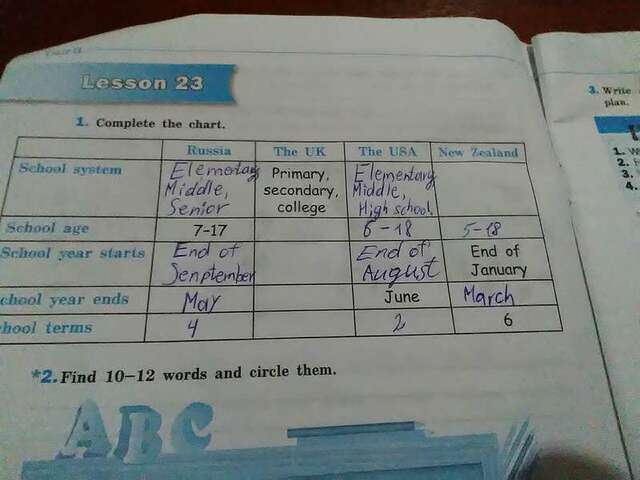 Lesson 23
1. Complete the chart.
Russia The UK The USA New Zealand
School system Elementary, Middle, Senior Primary, secondary, college Elementary, Middle, High school.
School age 7-17 6-18 5-18
School year starts End of Senptember End of August End of January
chool year ends May June March
hool terms 4 2 6
*2. Find 10–12 words and circle them.
ABC
3. Write
plan.
1.
2.
3.
4.